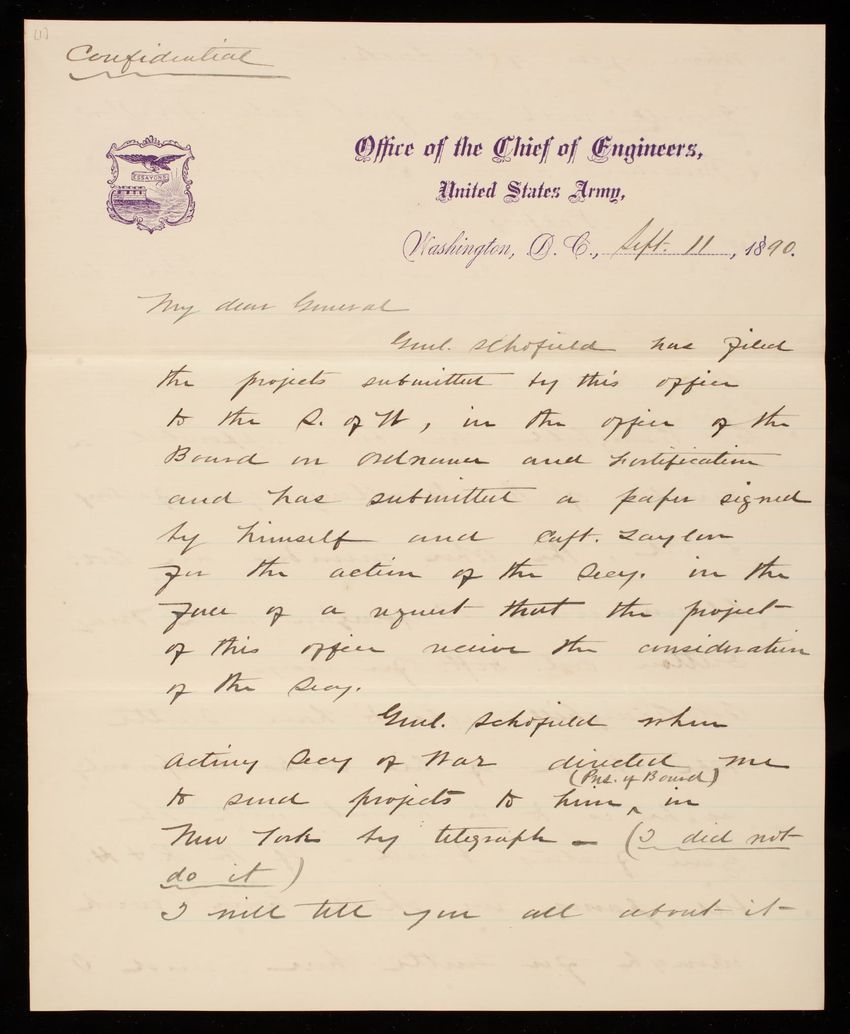 (1)
Confidential
ESSAYONS
Office of the Chief of Engineers,
United States Army,
Washington, D. C., Sept. 11, 1890.
My dear General
Genl. Schofield has filed
the projects submitted by this office
to the S. of W, in the office of the
Board on Ordnance and Fortification
and has submitted a paper signed
by himself and Capt. Taylor
for the action of the Secy. in the
face of a request that the project
of this office receive the consideration
of the Secy.
Genl. Schofield when
acting Secy of War directed me
(Pres. of Board)
to send projects to him ^ in
New York by telegraph – (I did not
do it)
I will tell you all about it